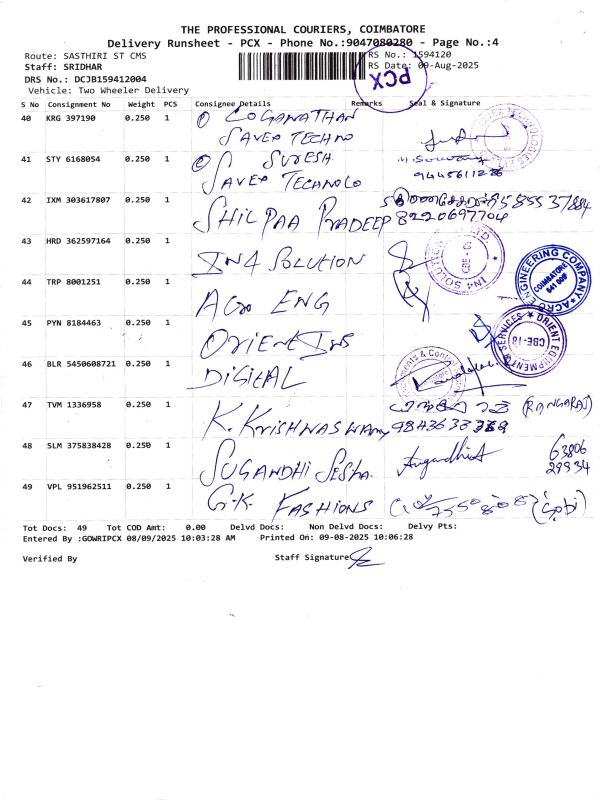 THE PROFESSIONAL COURIERS, COIMBATORE
Delivery Runsheet - PCX - Phone No.:9047080280 - Page No.:4
Route: SASTHIRI ST CMS
RS No.: 1594120
Staff: SRIDHAR
RS Date: 09-Aug-2025
DRS No.: DCJB159412004
PCX
Vehicle: Two Wheeler Delivery
S No Consignment No Weight PCS Consignee Details Remarks Seal & Signature
40 KRG 397190 0.250 1 LOGANATHAN
SAVEX TECHNO
41 STY 6168054 0.250 1 SURESH
SAVEX TECHNOLO 9445611286
42 IXM 303617807 0.250 1
SHILPAA PRADEEP 8220697704
43 HRD 362597164 0.250 1 IN4 SOLUTION
44 TRP 8001251 0.250 1 ACRO ENG
ACRO ENGINEERING COMPANY
COIMBATORE
45 PYN 8184463 0.250 1 ORIENT INS
ORIENT EQUIPMENT & SERVICES
CBE-18
46 BLR 5450608721 0.250 1 DIGITAL
47 TVM 1336958 0.250 1 K. KRISHNASWAMY (RANGARAJ)
48 SLM 375838428 0.250 1 SUGANDHI SESHA. 63806
29934
49 VPL 951962511 0.250 1 G.K. FASHIONS
Tot Docs: 49 Tot COD Amt: 0.00 Delvd Docs: Non Delvd Docs: Delvy Pts:
Entered By :GOWRIPCX 08/09/2025 10:03:28 AM Printed On: 09-08-2025 10:06:28
Verified By Staff Signature